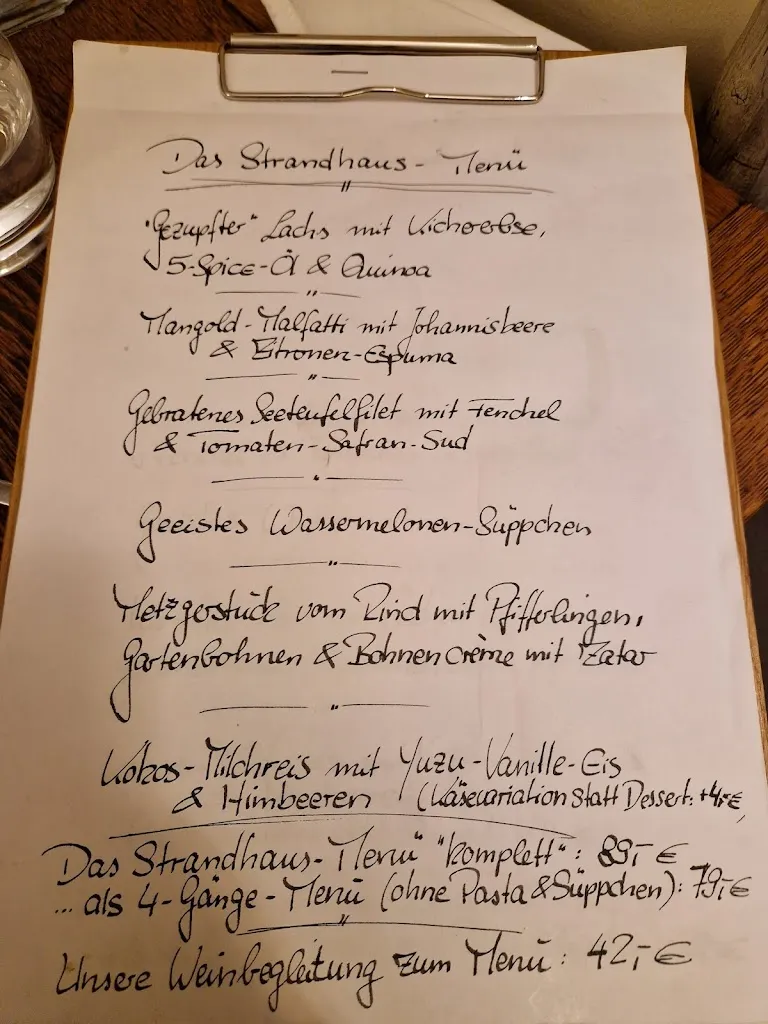 Das Strandhaus-Menü
"Gezupfter" Lachs mit Kichererbse,
5-Spice-Öl & Quinoa
Mangold-Malfatti mit Johannisbeere
& Zitronen-Espuma
Gebratenes Seeteufelfilet mit Fenchel
& Tomaten-Safran-Sud
Geeistes Wassermelonen-Süppchen
Metzgerstück vom Rind mit Pfifferlingen,
Gartenbohnen & Bohnencrème mit Zatar
Kokos-Milchreis mit Yuzu-Vanille-Eis
& Himbeeren (Käsevariation statt Dessert: +4,-€
Das Strandhaus-Menü "komplett": 89,- €
... als 4-Gänge-Menü (ohne Pasta & Süppchen): 79,- €
Unsere Weinbegleitung zum Menü: 42,- €